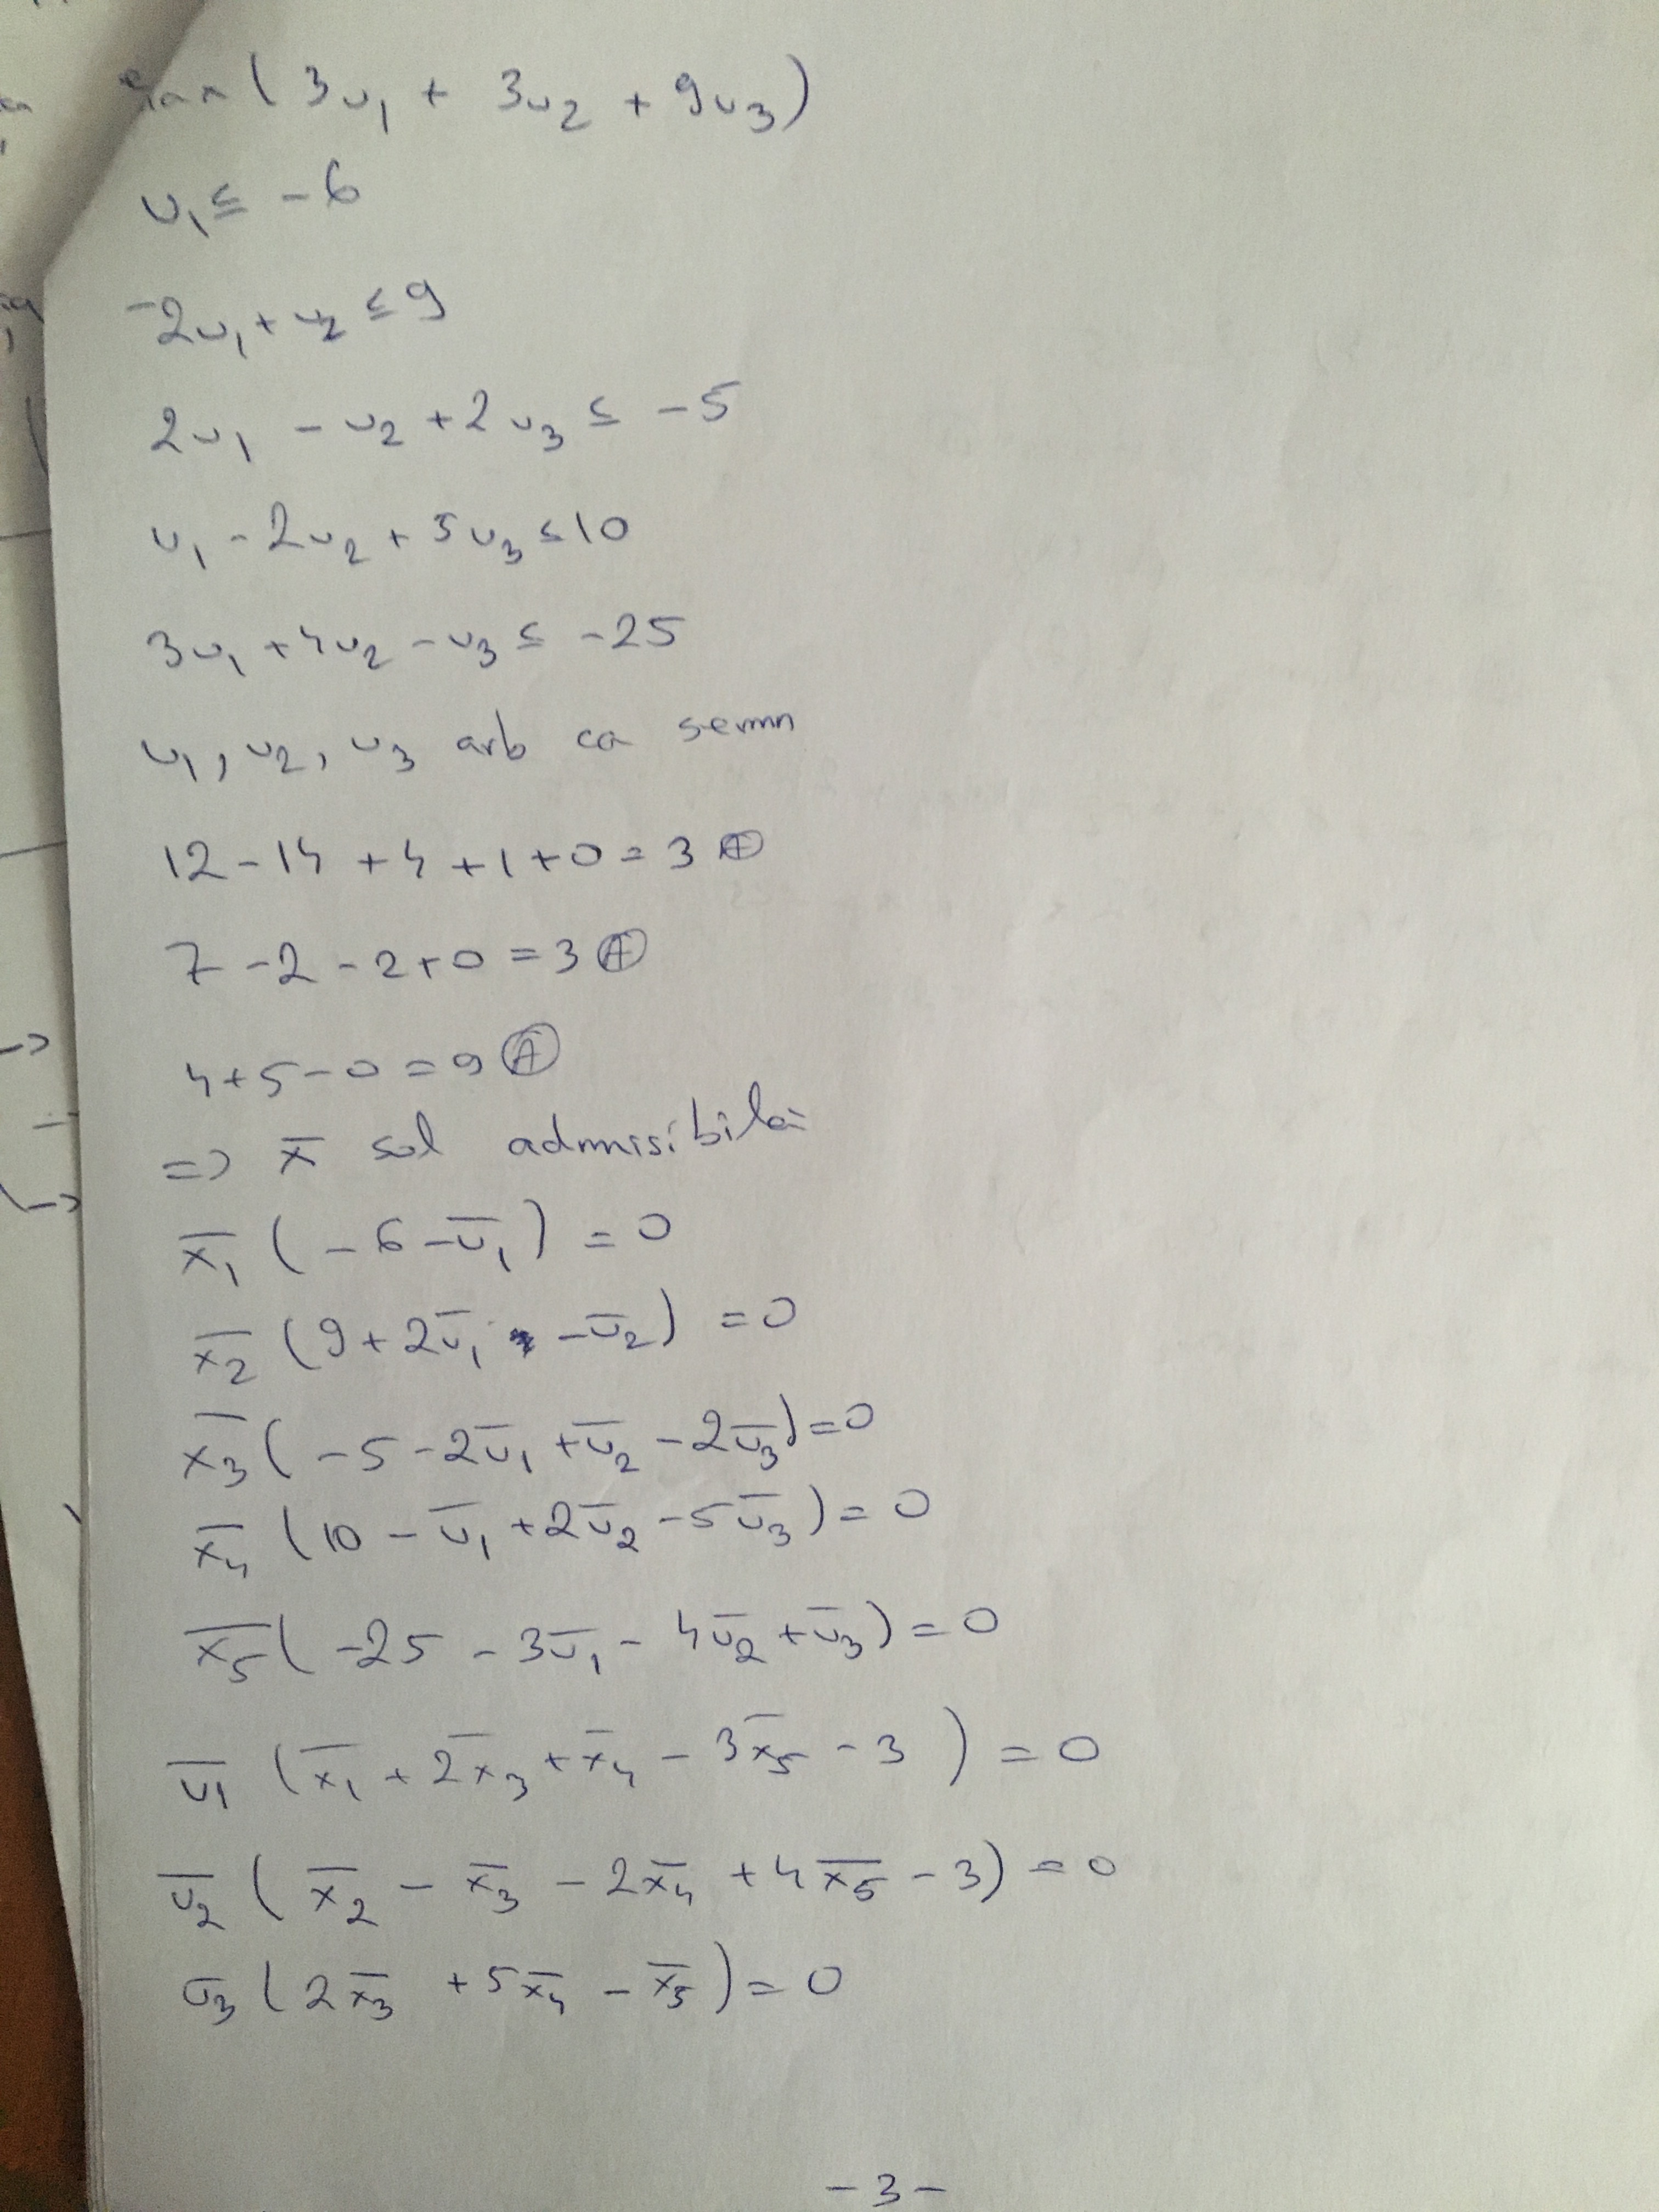 max ( 3u₁ + 3u₂ + 9u₃ )
u₁ ≤ -6
-2u₁ + u₂ ≤ 9
2u₁ - u₂ + 2u₃ ≤ -5
u₁ - 2u₂ + 5u₃ ≤ 10
3u₁ + 4u₂ - u₃ ≤ -25
u₁, u₂, u₃ arb ca semn
12 - 14 + 4 + 1 + 0 = 3 Ⓐ
7 - 2 - 2 + 0 = 3 Ⓐ
4 + 5 - 0 = 9 Ⓐ
=> x̄ sol admisibilă
x̄₁ ( -6 - ū₁ ) = 0
x̄₂ ( 9 + 2ū₁ - ū₂ ) = 0
x̄₃ ( -5 - 2ū₁ + ū₂ - 2ū₃ ) = 0
x̄₄ ( 10 - ū₁ + 2ū₂ - 5ū₃ ) = 0
x̄₅ ( -25 - 3ū₁ - 4ū₂ + ū₃ ) = 0
ū₁ ( x̄₁ + 2x̄₃ + x̄₄ - 3x̄₅ - 3 ) = 0
ū₂ ( x̄₂ - x̄₃ - 2x̄₄ + 4x̄₅ - 3 ) = 0
ū₃ ( 2x̄₃ + 5x̄₄ - x̄₅ ) = 0
- 3 -